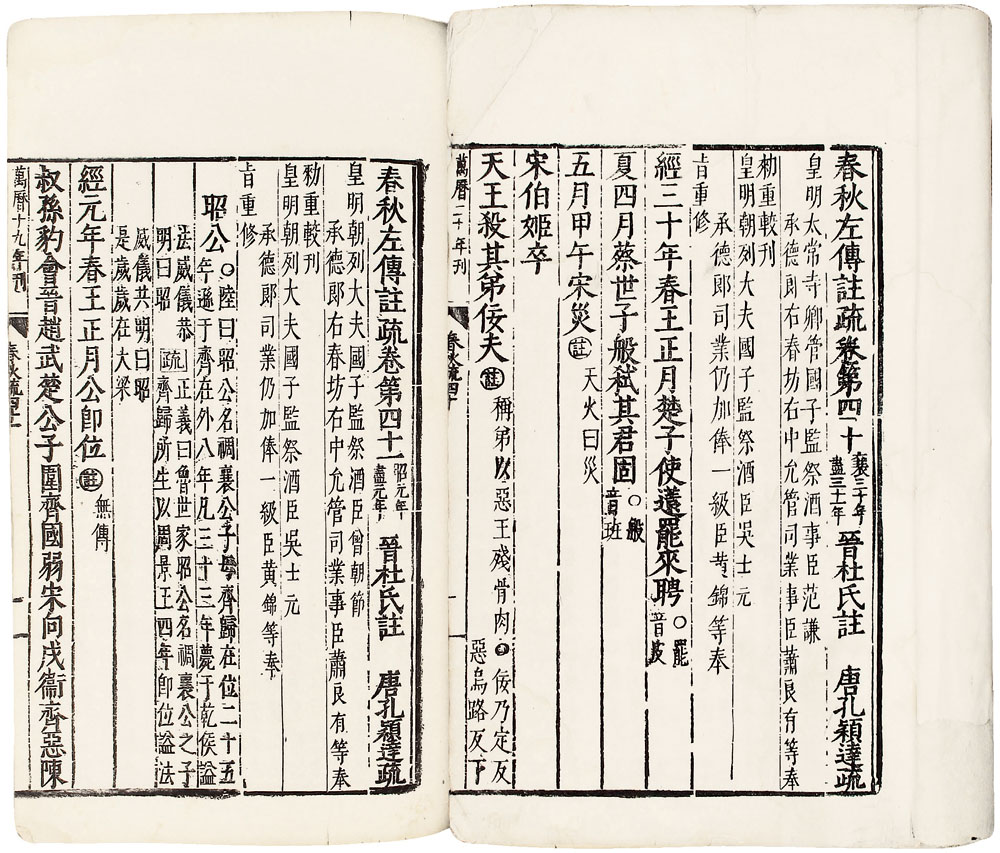 春秋左傳註疏卷第四十 襄三十年盡三十一年 晉杜氏註 唐孔穎達疏
皇明太常寺卿管國子監祭酒事臣范謙
承德郎右春坊右中允管司業事臣蕭良有等奉
勑重較刊
皇明朝列大夫國子監祭酒臣吳士元
承德郎司業仍加俸一級臣黃錦等奉
旨重修
經三十年春王正月楚子使薳罷來聘 ○罷音皮
夏四月蔡世子般弒其君固 ○般音班
五月甲午宋災 註 天火曰災
宋伯姬卒
天王殺其弟佞夫 註 稱弟以惡王殘骨肉○佞乃定反惡烏路反下
萬曆二十年刊 春秋疏四十
春秋左傳註疏卷第四十一 昭元年盡元年 晉杜氏註 唐孔穎達疏
皇明朝列大夫國子監祭酒臣曾朝節
承德郎右春坊右中允管司業事臣蕭良有等奉
勑重較刊
皇明朝列大夫國子監祭酒臣吳士元
承德郎司業仍加俸一級臣黃錦等奉
旨重修
昭公 ○陸曰昭公名裯襄公子母齊歸在位二十五
年遜于齊在外八年凡三十三年薨于乾侯謚
法威儀恭明曰昭 疏 正義曰魯世家昭公名裯襄公之子
齊歸所生以周景王四年即位謚法
威儀共明曰昭
是歲歲在大梁
經元年春王正月公即位 註 無傳
叔孫豹會晉趙武楚公子圍齊國弱宋向戌衞齊惡陳
萬曆十九年刊 春秋疏四十一